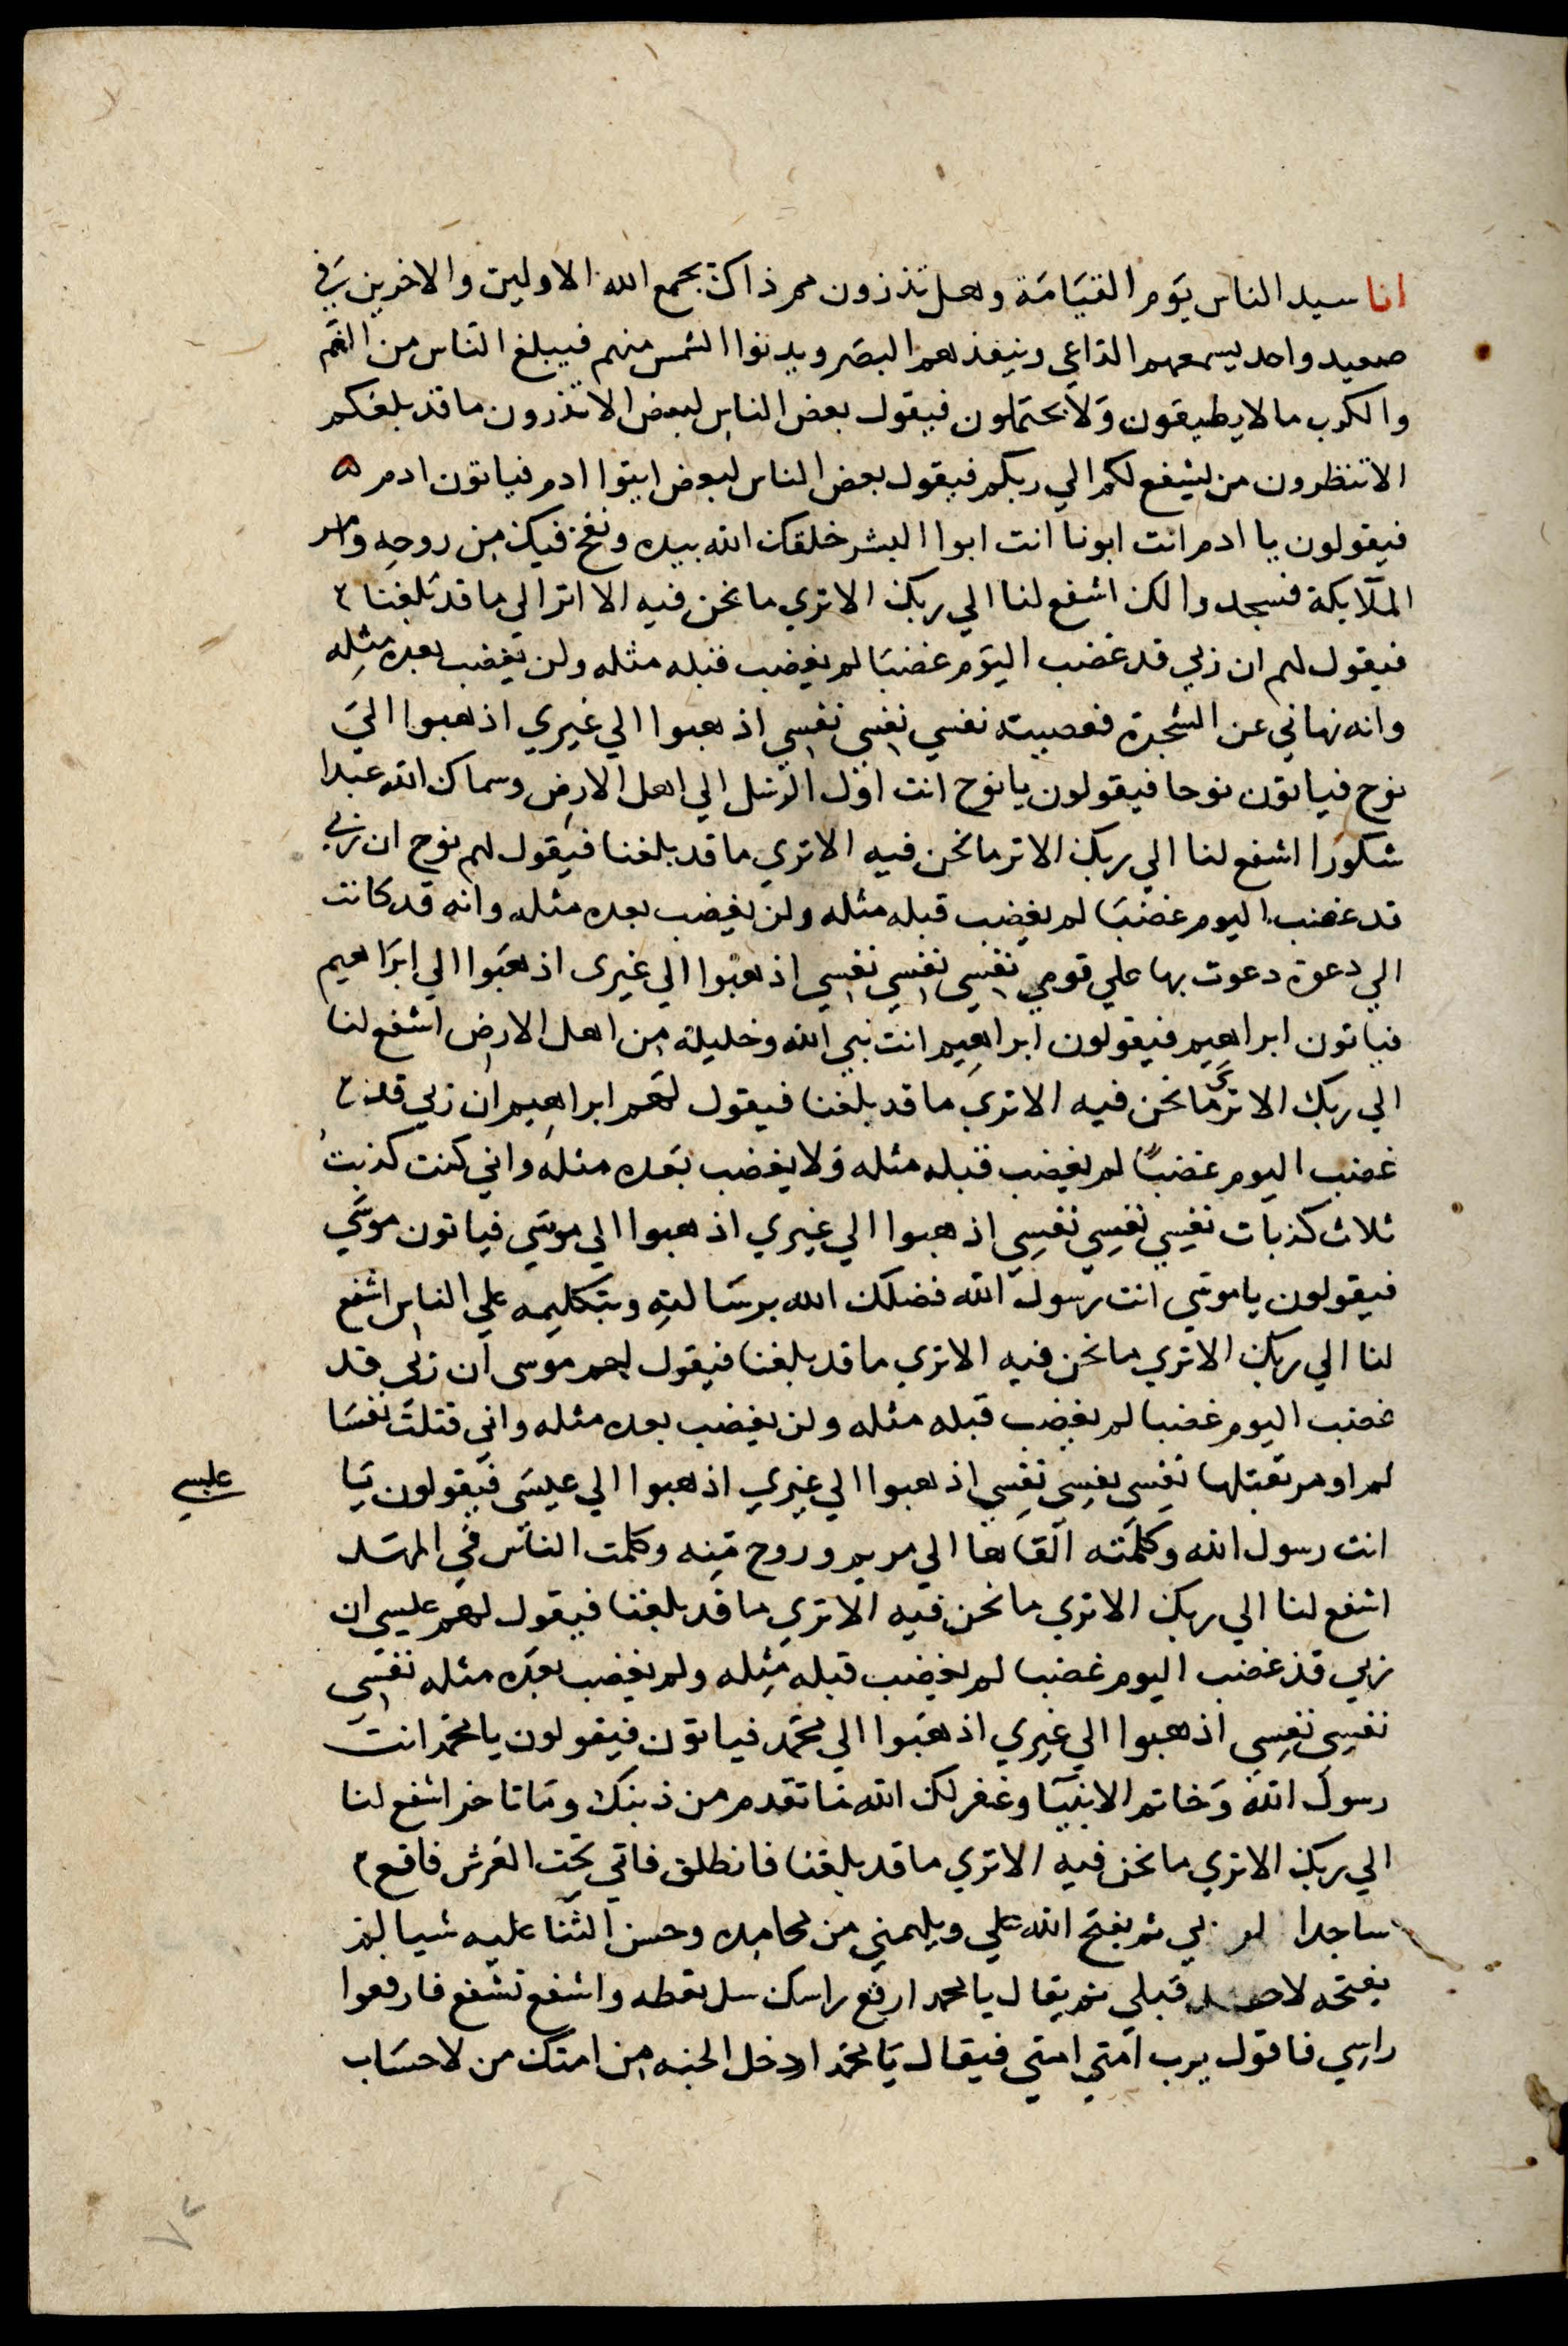 انا سيد الناس يوم القيامة وهل تدرون مم ذاك يجمع الله الاولين والاخرين في
صعيد واحد يسمعهم الداعي وينفذهم البصر ويدنوا الشمس منهم فيبلغ الناس من الغم
والكرب ما لا يطيقون ولا يحتملون فيقول بعض الناس لبعض الا تدرون ما قد بلغكم
الا تنظرون من يشفع لكم الي ربكم فيقول بعض الناس لبعض ايتوا ادم فياتون ادم ه
فيقولون يا ادم انت ابونا انت ابوا البشر خلقك الله بيده ونفخ فيك من روحه وامر
الملايكة فسجدوا لك اشفع لنا الي ربك الا تري ما نحن فيه الا تر الي ما قد بلغنا
فيقول لهم ان ربي قد غضب اليوم غضبا لم يغضب قبله مثله ولن يغضب بعده مثله
وانه نهاني عن الشجرة فعصيته نفسي نفسي نفسي اذهبوا الي غيري اذهبوا الي
نوح فياتون نوحا فيقولون يا نوح انت اول الرسل الي اهل الارض وسماك الله عبدا
شكورا اشفع لنا الي ربك الا تر ما نحن فيه الا تري ما قد بلغنا فيقول لهم نوح ان ربي
قد غضب اليوم غضبا لم يغضب قبله مثله ولن يغضب بعده مثله وانه قد كانت
الي دعوة دعوت بها علي قومي نفسي نفسي نفسي اذهبوا الي غيري اذهبوا الي ابراهيم
فياتون ابراهيم فيقولون ابراهيم انت نبي الله وخليله من اهل الارض اشفع لنا
الي ربك الا تري ما نحن فيه الا تري ما قد بلغنا فيقول لهم ابراهيم ان ربي قد
غضب اليوم غضبا لم يغضب قبله مثله ولا يغضب بعده مثله واني كنت كذبت
ثلاث كذبات نفسي نفسي نفسي اذهبوا الي غيري اذهبوا الي موسي فياتون موسي
فيقولون يا موسي انت رسول الله فضلك الله برسالته وبتكليمه علي الناس اشفع
لنا الي ربك الا تري ما نحن فيه الا تري ما قد بلغنا فيقول لهم موسى ان ربي قد
غضب اليوم غضبا لم يغضب قبله مثله ولن يغضب بعده مثله واني قتلت نفسا
لم اومر بقتلها نفسي نفسي نفسي اذهبوا الي غيري اذهبوا الي عيسى فيقولون يا
عيسي
انت رسول الله وكلمته القاها الي مريم وروح منه وكلمت الناس في المهد
اشفع لنا الي ربك الا تري ما نحن فيه الا تري ما قد بلغنا فيقول لهم عيسى ان
ربي قد غضب اليوم غضبا لم يغضب قبله مثله ولم يغضب بعده مثله نفسي
نفسي نفسي اذهبوا الي غيري اذهبوا الي محمد فياتون فيقولون يا محمد انت
رسول الله وخاتم الانبيا وغفر لك الله ما تقدم من ذنبك وما تاخر اشفع لنا
الي ربك الا تري ما نحن فيه الا تري ما قد بلغنا فانطلق فاتي تحت العرش فاقع
ساجدا لربي ثم يفتح الله علي ويلهمني من محامده وحسن الثنا عليه شيا لم
يفتحه لاحد قبلي ثم يقال يا محمد ارفع راسك سل تعطه واشفع تشفع فارفعوا
راسي فاقول يرب امتي امتي فيقال يا محمد ادخل الجنه من امتك من لا حساب